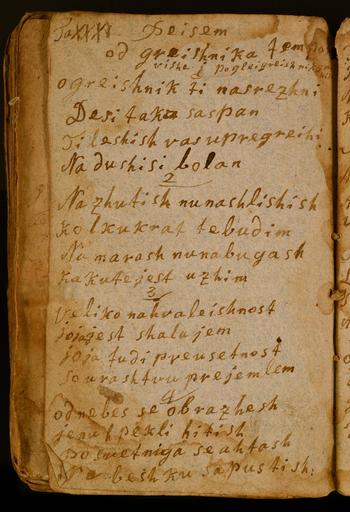 Ta XXXX Peisem
od greishnika tempa
vishe i pogleigreishnik
o greishnik ti nasrezhni
Desi taka saspan
Ti leshish vas upregreihi
Na dushi si bolan
2
Na zhutish nu nashlishish
kolkukrat te budim
Na marash nu nabugash
kakute jest uzhim
3
Veliko nahvaleishnost
jojajest shalujem
joja tudi preusetnost
sourashtvu prejemlem
4
od nebes se obrazhesh
jenuh pekli hitish
posvetnija se ahtash
Na besh ku sapustish: